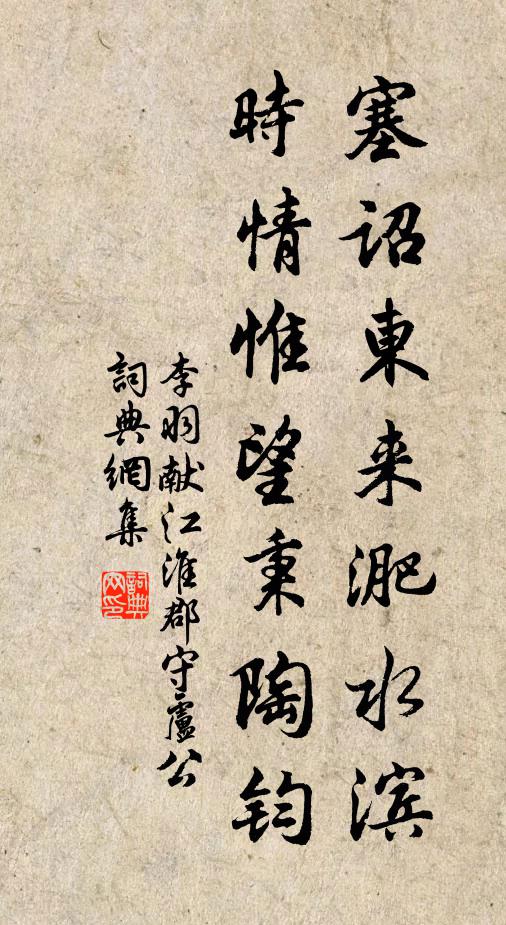 塞诏東来淝水滨
時情惟望秉陶钧
李羽献江淮郡守盧公
詞典網集
詞典網印